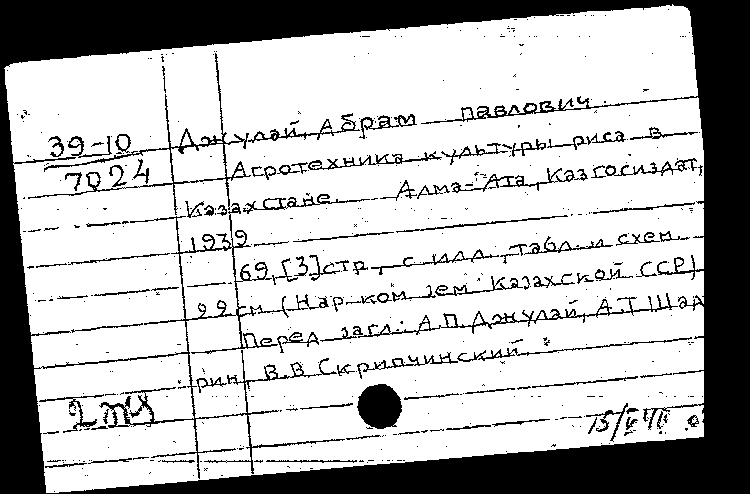 39-10
7024
Джулай, Абрам павлович.
Агротехника культуры риса в
Казахстане. Алма-Ата, Казгосиздат,
1939
69, [3] стр., с илл., табл. и схем.
22 см (Нар. ком. зем. Казахской ССР)
Перед загл.: А.П. Джулай, А.Т. Шад
рин, В.В. Скрипчинский.